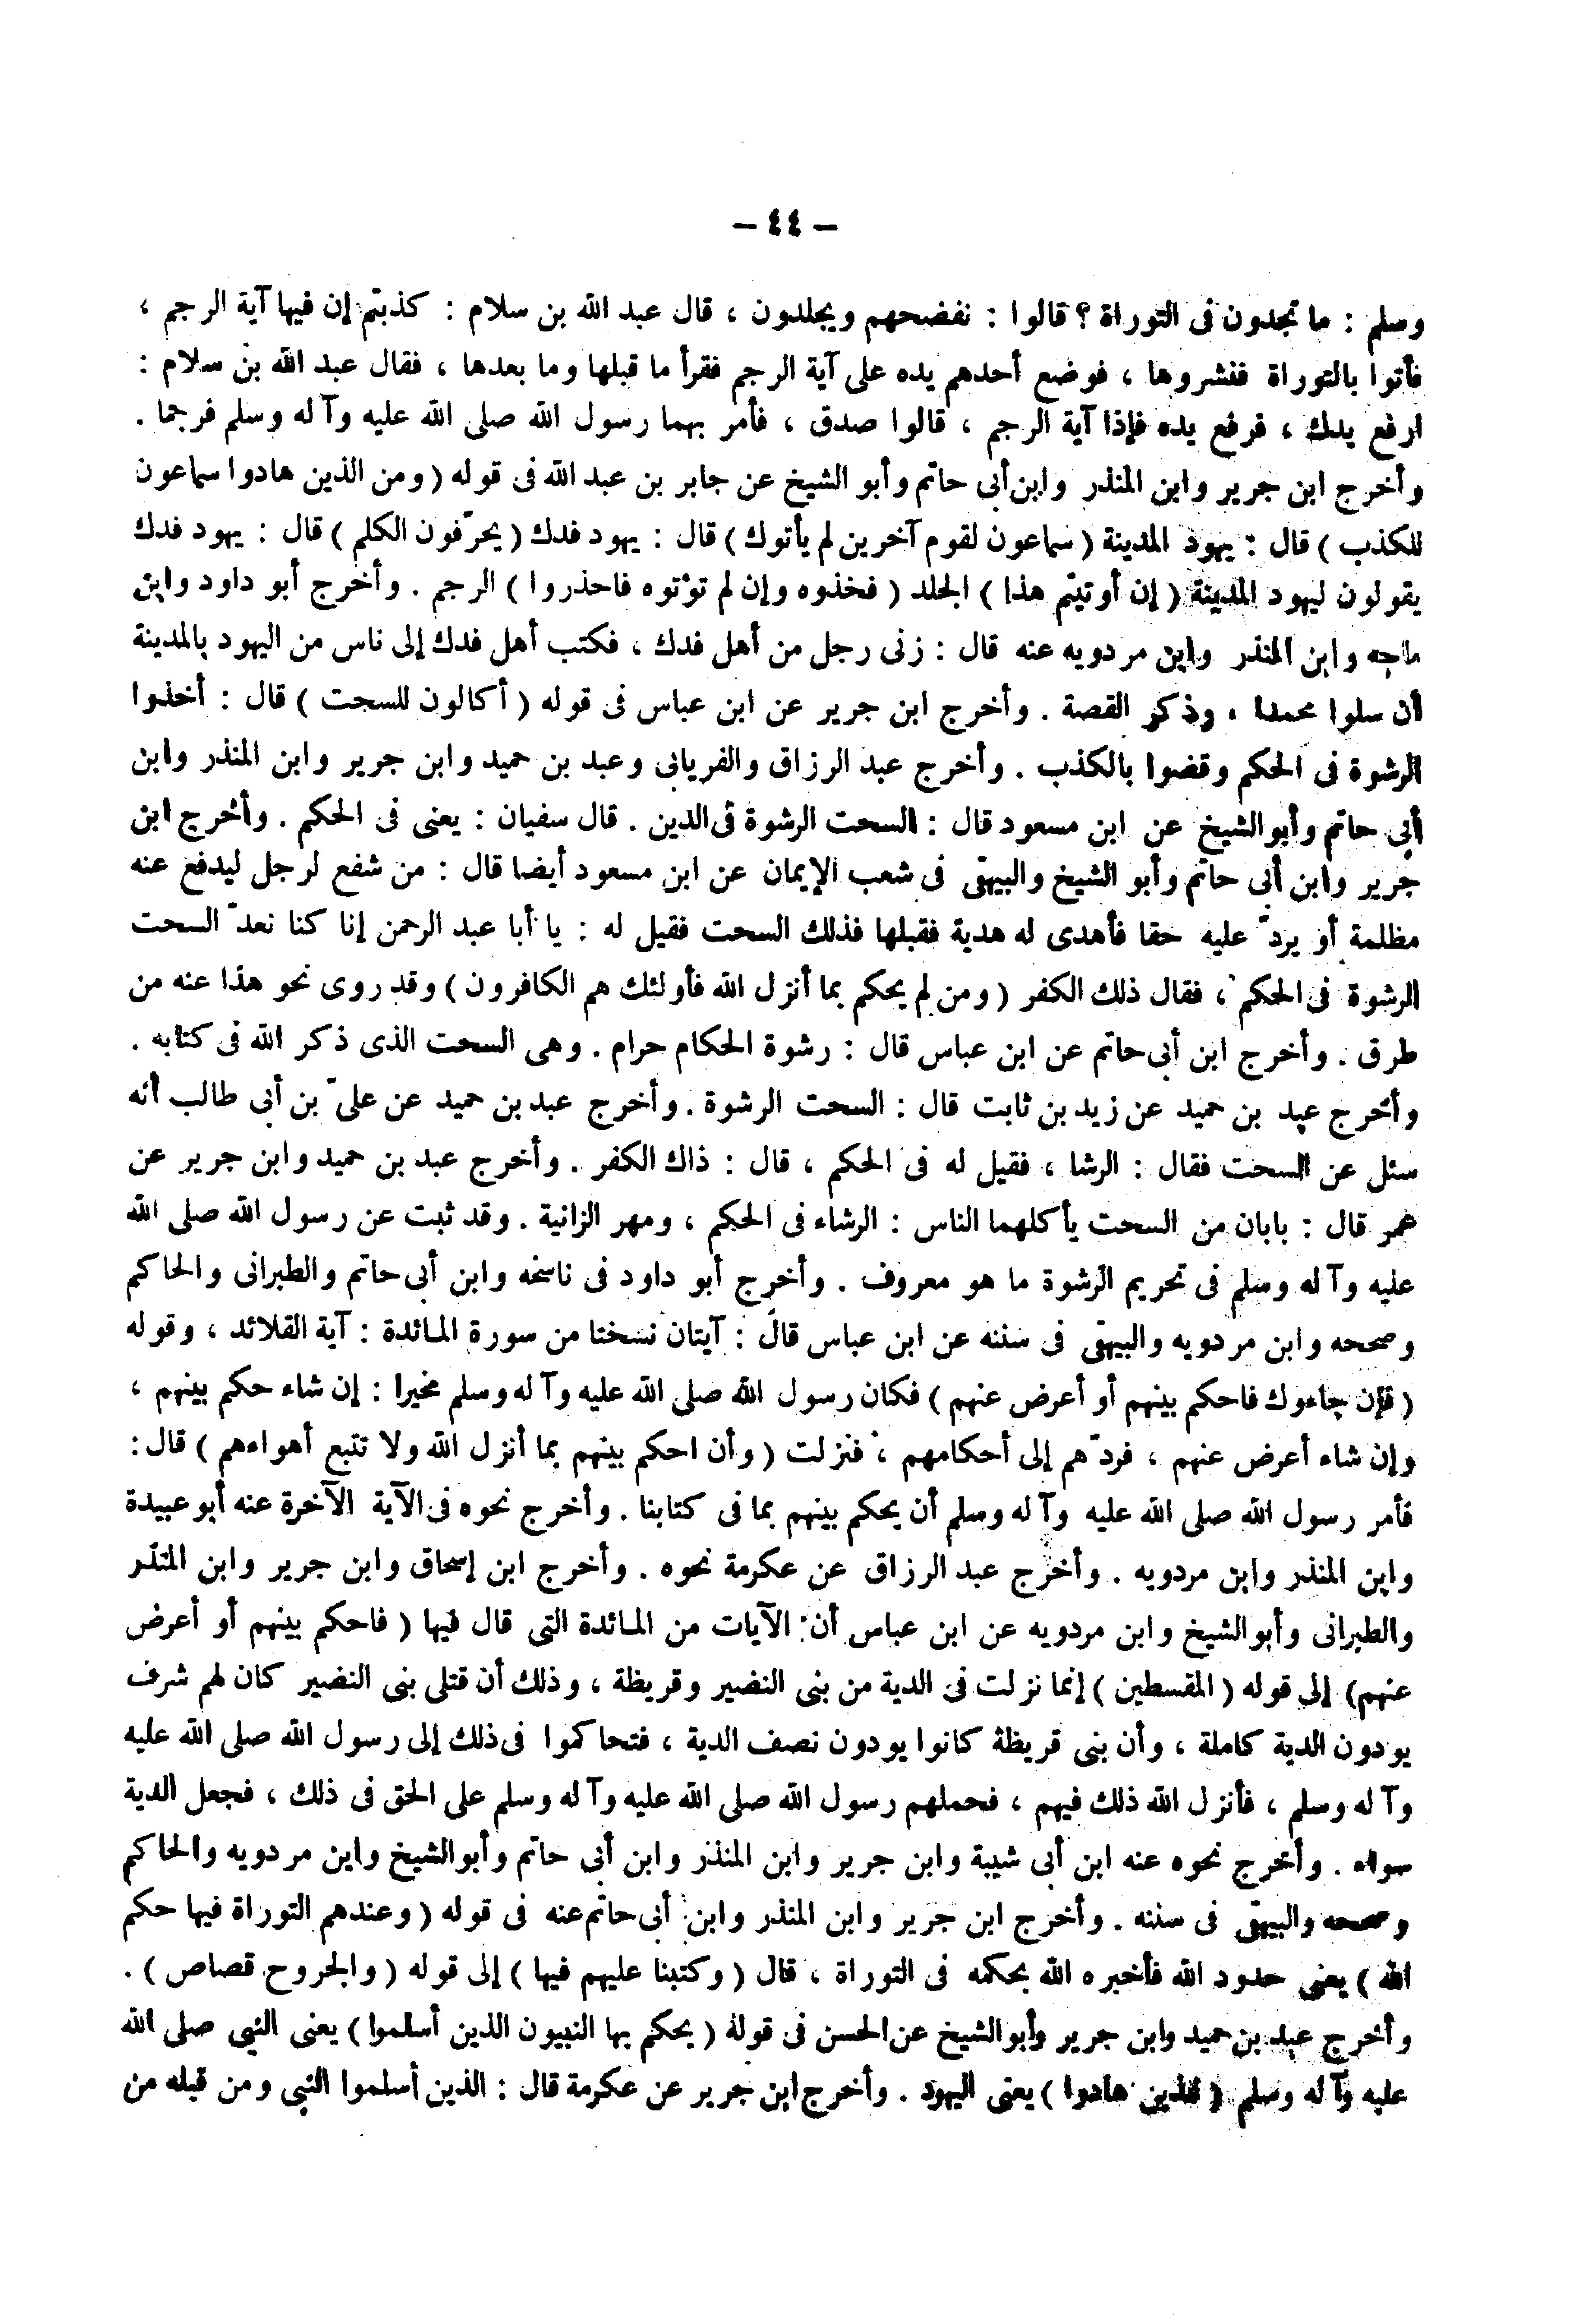 – ٤٤ –
وسلم : ما تجدون فى التوراة ؟ قالوا : نفضحهم ويجلدون ، قال عبد الله بن سلام : كذبتم إن فيها آية الرجم ،
فأتوا بالتوراة فنشروها ، فوضع أحدهم يده على آية الرجم فقرأ ما قبلها وما بعدها ، فقال عبد الله بن سلام :
ارفع يدك ، فرفع يده فإذا آية الرجم ، قالوا صدق ، فأمر بهما رسول الله صلى الله عليه وآله وسلم فرجما .
وأخرج ابن جرير وابن المنذر وابن أبى حاتم وأبو الشيخ عن جابر بن عبد الله فى قوله ( ومن الذين هادوا سماعون
للكذب ) قال : يهود المدينة ( سماعون لقوم آخرين لم يأتوك ) قال : يهود فدك ( يحرّفون الكلم ) قال : يهود فدك
يقولون ليهود المدينة ( إن أوتيتم هذا ) الجلد ( فخذوه وإن لم تؤتوه فاحذروا ) الرجم . وأخرج أبو داود وابن
ماجه وابن المنذر وابن مردويه عنه قال : زنى رجل من أهل فدك ، فكتب أهل فدك إلى ناس من اليهود بالمدينة
أن سلوا محمدا ، وذكر القصة . وأخرج ابن جرير عن ابن عباس فى قوله ( أكالون للسحت ) قال : أخذوا
الرشوة فى الحكم وقضوا بالكذب . وأخرج عبد الرزاق والفريابى وعبد بن حميد وابن جرير وابن المنذر وابن
أبى حاتم وأبو الشيخ عن ابن مسعود قال : السحت الرشوة فى الدين . قال سفيان : يعنى فى الحكم . وأخرج ابن
جرير وابن أبى حاتم وأبو الشيخ والبيهقى فى شعب الإيمان عن ابن مسعود أيضا قال : من شفع لرجل ليدفع عنه
مظلمة أو يردّ عليه حقا فأهدى له هدية فقبلها فذلك السحت فقيل له : يا أبا عبد الرحمن إنا كنا نعدّ السحت
الرشوة فى الحكم ، فقال ذلك الكفر ( ومن لم يحكم بما أنزل الله فأولئك هم الكافرون ) وقد روى نحو هذا عنه من
طرق . وأخرج ابن أبى حاتم عن ابن عباس قال : رشوة الحكام حرام . وهى السحت الذى ذكر الله فى كتابه .
وأخرج عبد بن حميد عن زيد بن ثابت قال : السحت الرشوة . وأخرج عبد بن حميد عن علىّ بن أبى طالب أنه
سئل عن السحت فقال : الرشا ، فقيل له فى الحكم ، قال : ذاك الكفر . وأخرج عبد بن حميد وابن جرير عن
عمر قال : بابان من السحت يأكلهما الناس : الرشاء فى الحكم ، ومهر الزانية . وقد ثبت عن رسول الله صلى الله
عليه وآله وسلم فى تحريم الرشوة ما هو معروف . وأخرج أبو داود فى ناسخه وابن أبى حاتم والطبرانى والحاكم
وصححه وابن مردويه والبيهقى فى سننه عن ابن عباس قال : آيتان نسختا من سورة المائدة : آية القلائد ، وقوله
( فإن جاءوك فاحكم بينهم أو أعرض عنهم ) فكان رسول الله صلى الله عليه وآله وسلم مخيرا : إن شاء حكم بينهم ،
وإن شاء أعرض عنهم ، فردّهم إلى أحكامهم ، فنزلت ( وأن احكم بينهم بما أنزل الله ولا تتبع أهواءهم ) قال :
فأمر رسول الله صلى الله عليه وآله وسلم أن يحكم بينهم بما فى كتابنا . وأخرج نحوه فى الآية الآخرة عنه أبو عبيدة
وابن المنذر وابن مردويه . وأخرج عبد الرزاق عن عكرمة نحوه . وأخرج ابن إسحاق وابن جرير وابن المنذر
والطبرانى وأبو الشيخ وابن مردويه عن ابن عباس أن الآيات من المائدة التى قال فيها ( فاحكم بينهم أو أعرض
عنهم) إلى قوله ( المقسطين ) إنما نزلت فى الدية من بنى النضير وقريظة ، وذلك أن قتلى بنى النضير كان لهم شرف
يودون الدية كاملة ، وأن بنى قريظة كانوا يودون نصف الدية ، فتحاكموا فى ذلك إلى رسول الله صلى الله عليه
وآله وسلم ، فأنزل الله ذلك فيهم ، فحملهم رسول الله صلى الله عليه وآله وسلم على الحق فى ذلك ، فجعل الدية
سواء . وأخرج نحوه عنه ابن أبى شيبة وابن جرير وابن المنذر وابن أبى حاتم وأبو الشيخ وابن مردويه والحاكم
وصححه والبيهقى فى سننه . وأخرج ابن جرير وابن المنذر وابن أبى حاتم عنه فى قوله ( وعندهم التوراة فيها حكم
الله ) يعنى حدود الله فأخبره الله بحكمه فى التوراة ، قال ( وكتبنا عليهم فيها ) إلى قوله ( والجروح قصاص ) .
وأخرج عبد بن حميد وابن جرير وأبو الشيخ عن الحسن فى قوله ( يحكم بها النبيون الذين أسلموا ) يعنى النبى صلى الله
عليه وآله وسلم ( للذين هادوا ) يعنى اليهود . وأخرج ابن جرير عن عكرمة قال : الذين أسلموا النبى ومن قبله من